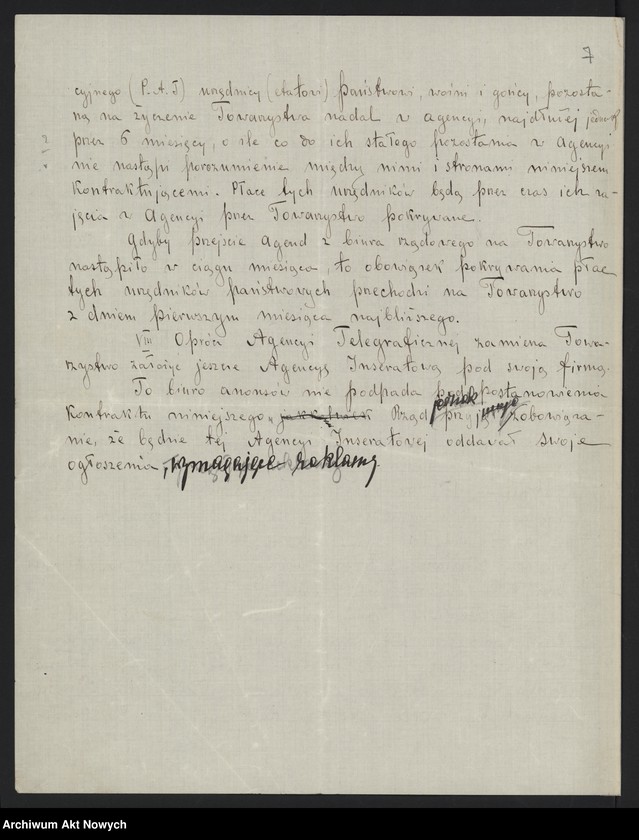 7
cyjnego (P.A.T) urzędnicy (etatowi) państwowi, woźni i gońcy, pozosta-
ną na życzenie Towarzystwa nadal w agencyi, najdłużej jednak
przez 6 miesięcy, o ile co do ich stałego pozostania w Agencyi
nie nastąpi porozumienie między nimi i stronami niniejszem
kontraktującemi. Płace tych urzędników będą przez czas ich za-
jęcia w Agencyi przez Towarzystwo pokrywane.
Gdyby przejście agend z biura rządowego na Towarzystwo
nastąpiło w ciągu miesiąca, to obowiązek pokrywania płac
tych urzędników państwowych przechodzi na Towarzystwo
z dniem pierwszym miesiąca najbliższego.
VIII Oprócz Agencyi Telegraficznej zamierza Towa-
rzystwo założyć jeszcze Agencyę Inseratową pod swoją firmą.
To biuro anonsów nie podpada pod postanowienia
kontraktu niniejszego, Rząd jednak przyjmuje zobowiąza-
nie, że będzie tej Agencyi Inseratowej oddawał swoje
ogłoszenia, wymagające reklamy.
Archiwum Akt Nowych